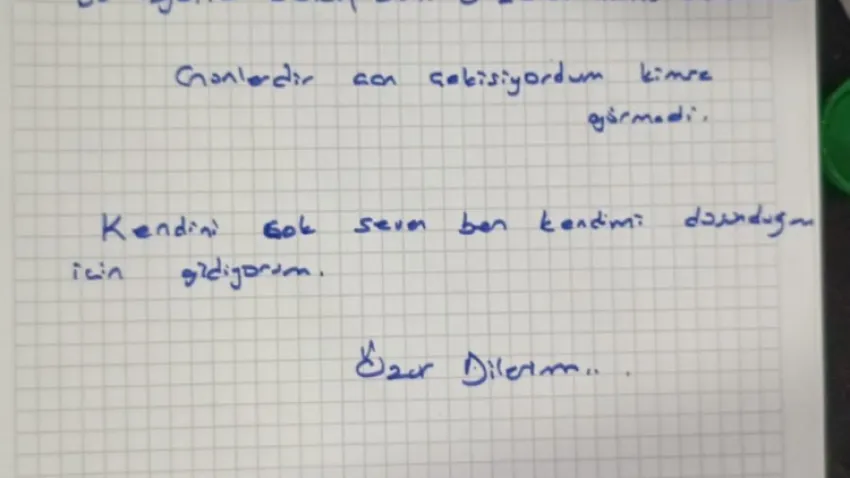 Günlerdir can çekişiyordum kimse
görmedi.
Kendini çok seven ben kendimi düşündüğüm
için gidiyorum.
Özür Dilerim...